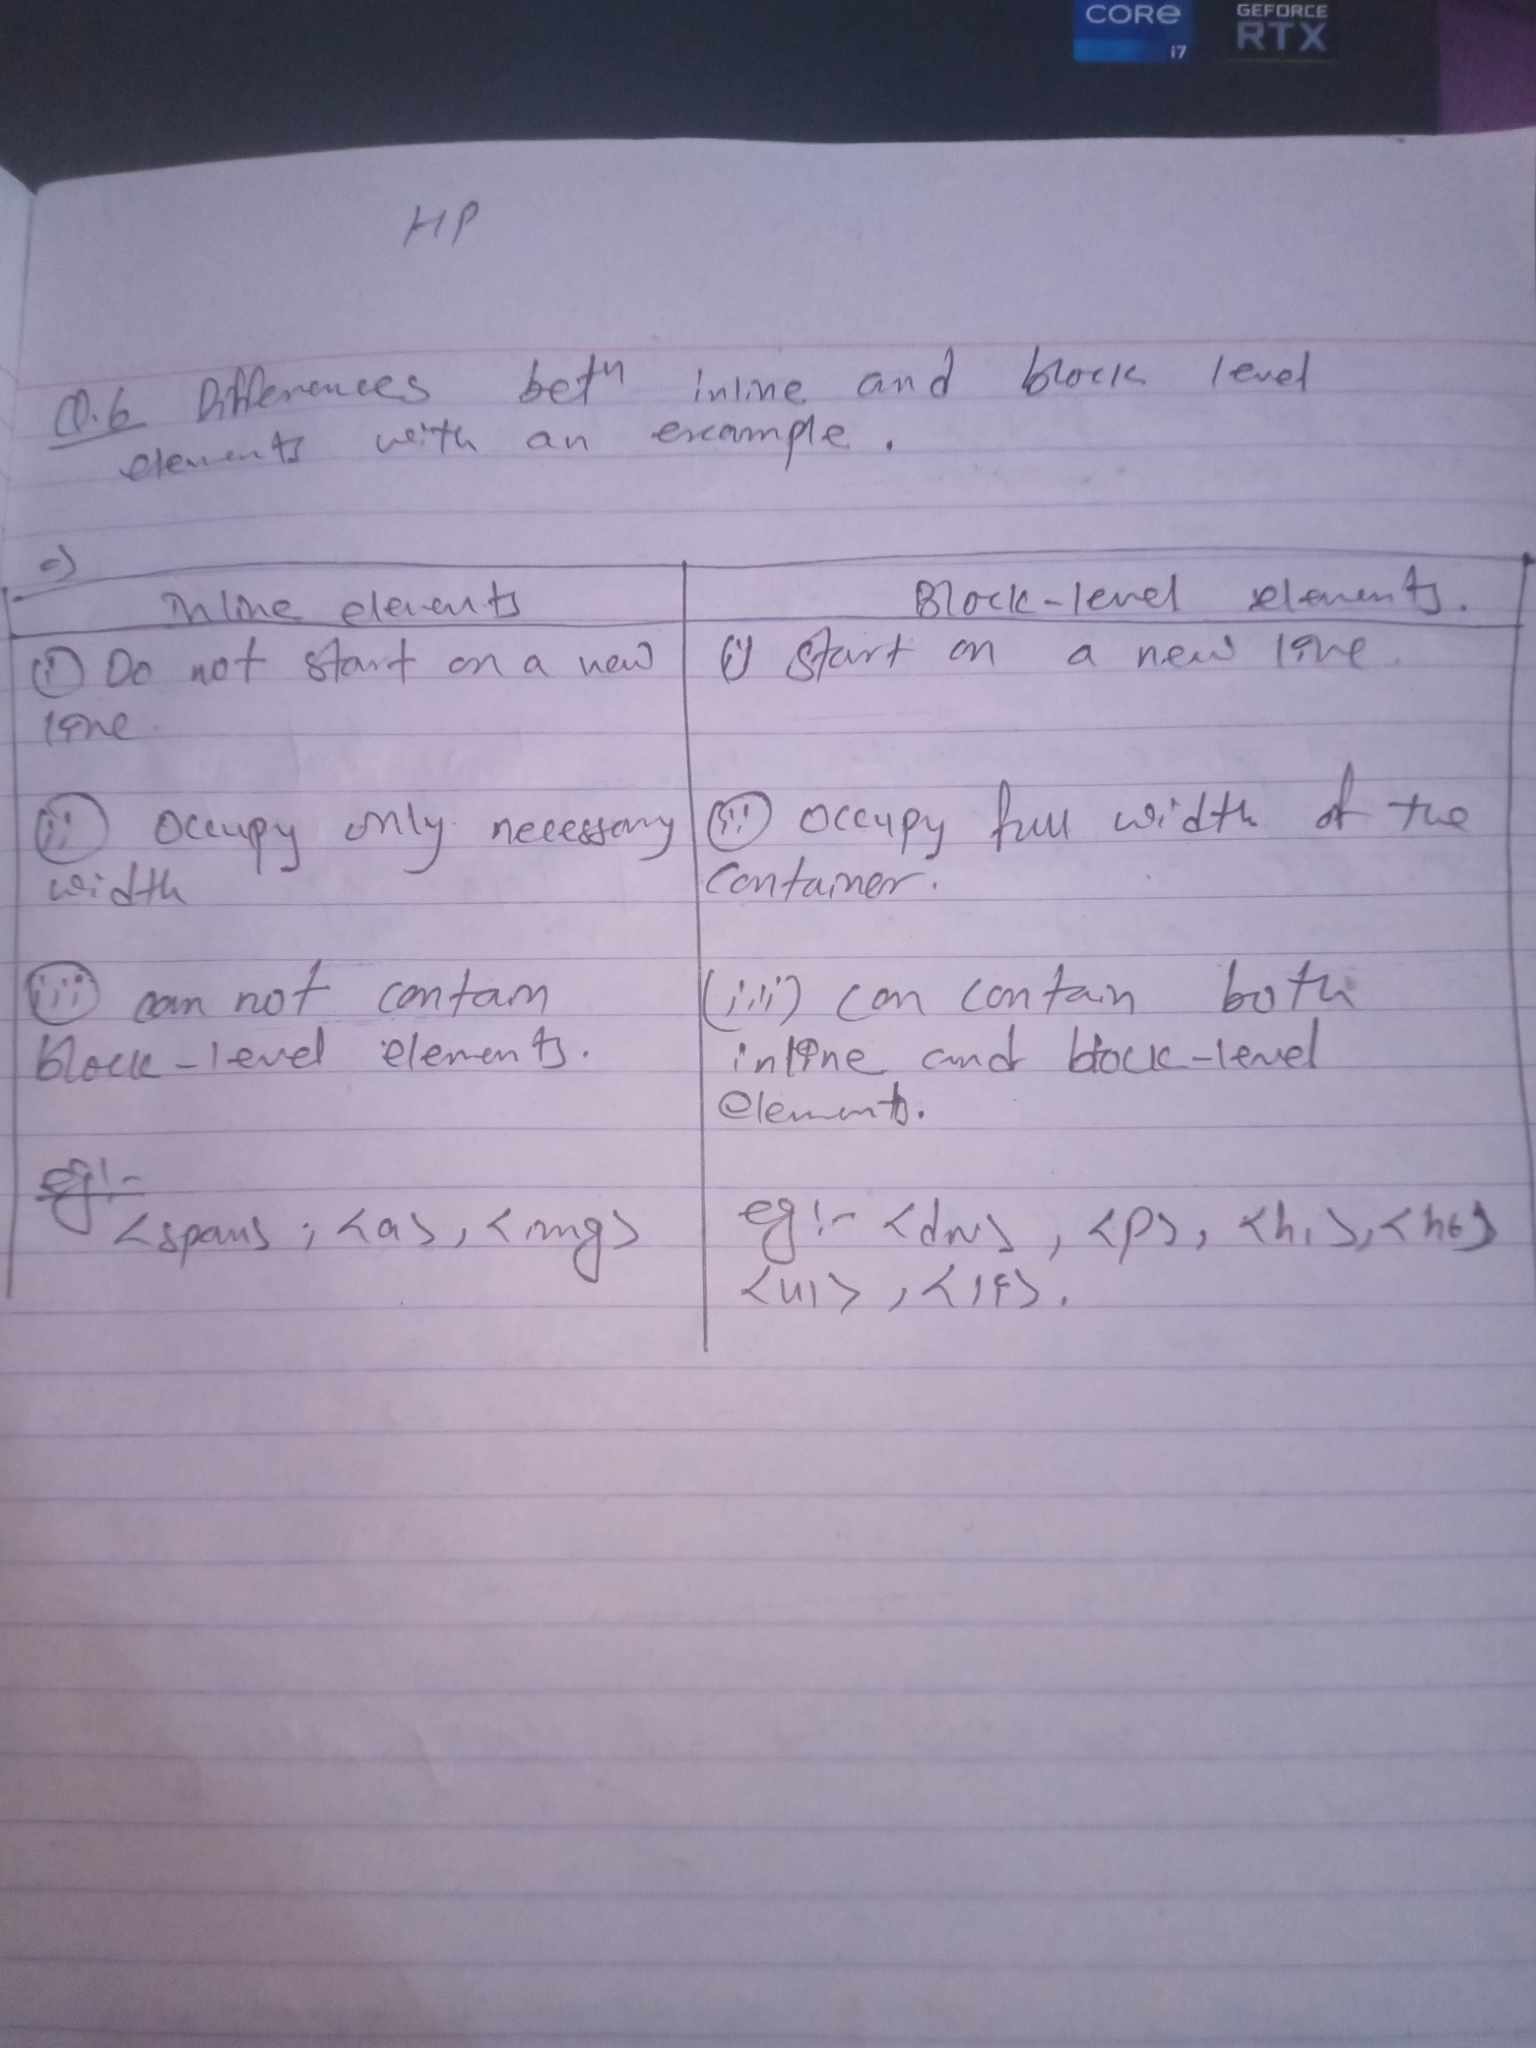 CORE
i7
GEFORCE
RTX
HP
Q.6 Differences betn inline and block level
elements with an example.
=>
Inline elements
Block-level elements.
(i) Do not start on a new
line.
(i) Start on a new line.
(ii) Occupy only necessary
width
(ii) Occupy full width of the
container.
(iii) can not contain
block-level elements.
(iii) can contain both
inline and block-level
elements.
eg:-
<span>, <a>, <img>
eg:- <div>, <p>, <h1>, <h6>
<ul>, <li>.